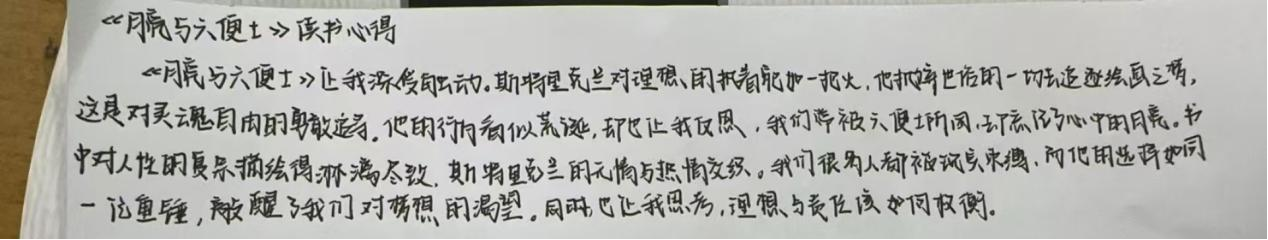 《月亮与六便士》读书心得
《月亮与六便士》让我深受触动。斯特里克兰对理想的执着宛如一把火,他抛弃世俗的一切去追逐绘画之梦,
这是对灵魂自由的勇敢追寻。他的行为看似荒诞,却也让我反思,我们常被六便士所困,却忘了心中的月亮。书
中对人性的复杂描绘得淋漓尽致,斯特里克兰的无情与热情交织。我们很多人都被现实束缚,而他的选择如同
一记重锤,敲醒了我们对梦想的渴望。同时也让我思考,理想与责任该如何权衡。